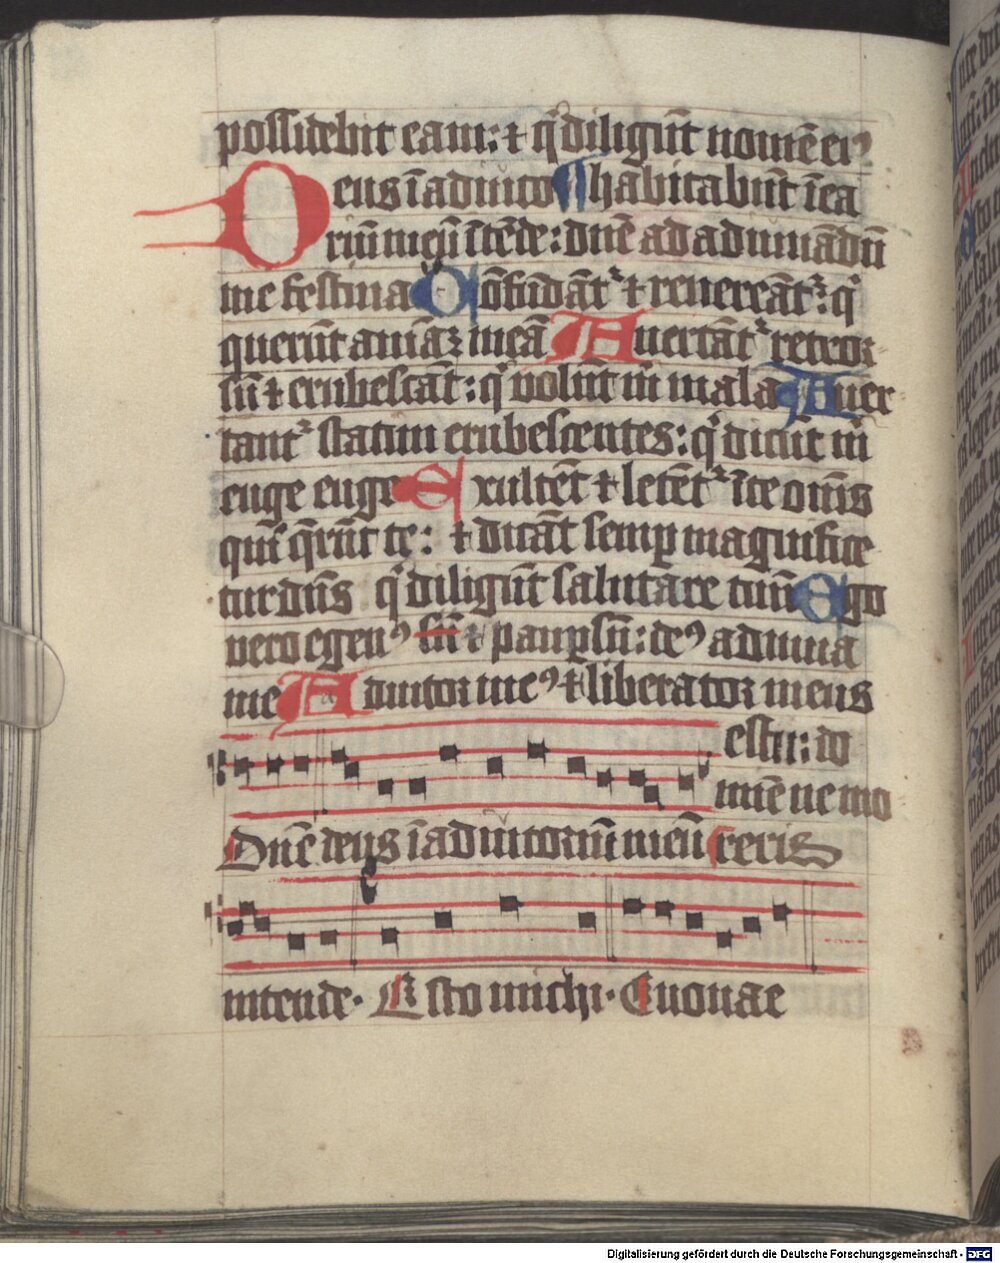 possidebit eam: ⁊ q̄ diligūt nomē eiꝰ
Deus ī adiuto ¶ habitabūt ī ea
riū meū ītēde: dn̄e ad adiuuādū
me festina Cōfūdāt᷑ ⁊ reuereāt᷑: q̄
querūt aīaʒ meā Auertāt᷑ retror
sū ⁊ erubescāt: q̄ volūt m̄ mala Auer
tant᷑ statim erubescentes: q̄ dicūt m̄
euge euge Exultēt ⁊ letēt᷑ ī te om̄s
qui q̄rūt te: ⁊ dicāt semꝑ magnifice
tur dn̄s q̄ diligūt salutare tuū Ego
vero egenꝰ sū ⁊ pauꝑ sū: deꝰ adiuua
me Adiutor meꝰ ⁊ liberator meus
es tu: do
mīe ne mo
Dn̄e deus ī adiutoriū meū reris
intende. Esto michi. Euouae
Digitalisierung gefördert durch die Deutsche Forschungsgemeinschaft - DFG